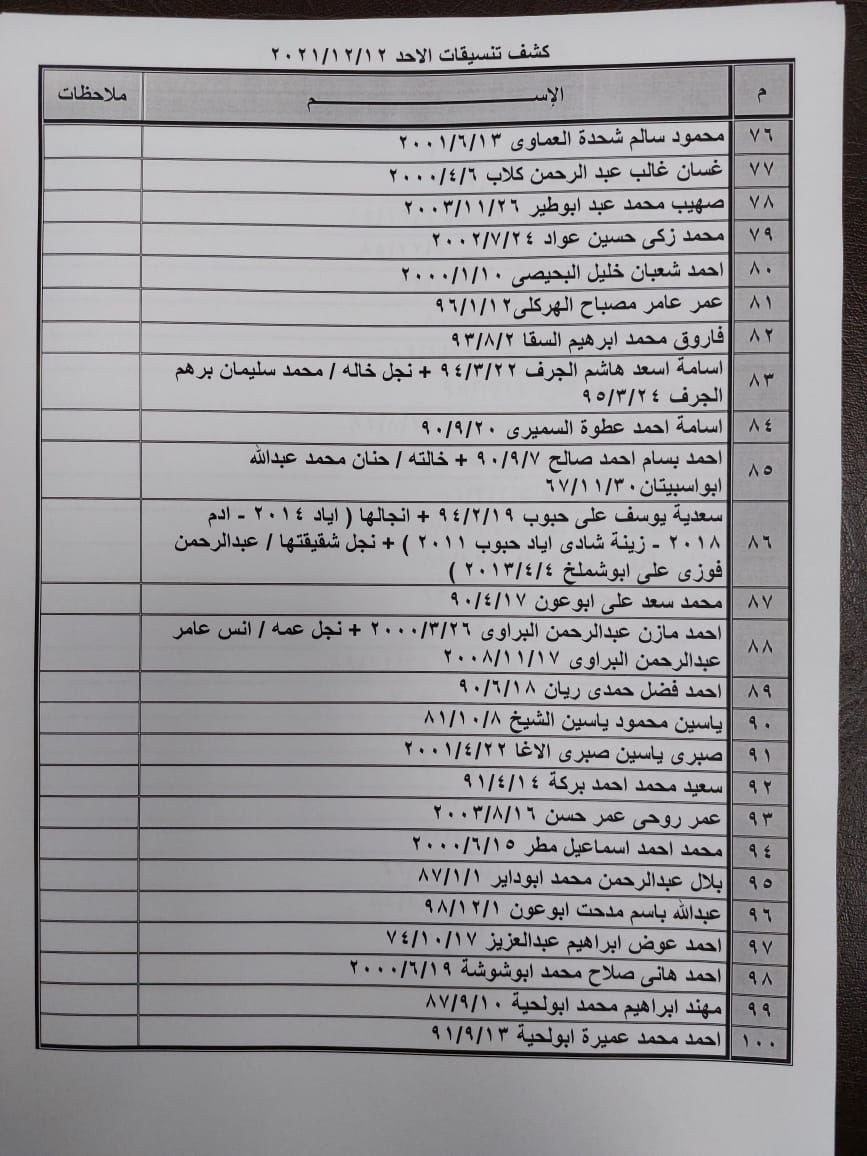 كشف تنسيقات الاحد ٢٠٢١/١٢/١٢
م الإســـــم ملاحظات
٧٦ محمود سالم شحدة العماوى ٢٠٠١/٦/١٣
٧٧ غسان غالب عبد الرحمن كلاب ٢٠٠٠/٤/٦
٧٨ صهيب محمد عبد ابوطير ٢٠٠٣/١١/٢٦
٧٩ محمد زكى حسين عواد ٢٠٠٢/٧/٢٤
٨٠ احمد شعبان خليل البحيصى ٢٠٠٠/١/١٠
٨١ عمر عامر مصباح الهركلى٩٦/١/١٢
٨٢ فاروق محمد ابرهيم السقا ٩٣/٨/٢
٨٣ اسامة اسعد هاشم الجرف ٩٤/٣/٢٢ + نجل خاله / محمد سليمان برهم
الجرف ٩٥/٣/٢٤
٨٤ اسامة احمد عطوة السميرى ٩٠/٩/٢٠
٨٥ احمد بسام احمد صالح ٩٠/٩/٧ + خالته / حنان محمد عبدالله
ابواسبيتان٦٧/١١/٣٠
٨٦ سعدية يوسف على حبوب ٩٤/٢/١٩ + انجالها ( اياد ٢٠١٤ - ادم
٢٠١٨ - زينة شادى اياد حبوب ٢٠١١ ) + نجل شقيقتها / عبدالرحمن
فوزى على ابوشملخ ٢٠١٣/٤/٤ )
٨٧ محمد سعد على ابوعون ٩٠/٤/١٧
٨٨ احمد مازن عبدالرحمن البراوى ٢٠٠٠/٣/٢٦ + نجل عمه / انس عامر
عبدالرحمن البراوى ٢٠٠٨/١١/١٧
٨٩ احمد فضل حمدى ريان ٩٠/٦/١٨
٩٠ ياسين محمود ياسين الشيخ ٨١/١٠/٨
٩١ صبرى ياسين صبرى الاغا ٢٠٠١/٤/٢٢
٩٢ سعيد محمد احمد بركة ٩١/٤/١٤
٩٣ عمر روحى عمر حسن ٢٠٠٣/٨/١٦
٩٤ محمد احمد اسماعيل مطر ٢٠٠٠/٦/١٥
٩٥ بلال عبدالرحمن محمد ابوداير ٨٧/١/١
٩٦ عبدالله باسم مدحت ابوعون ٩٨/١٢/١
٩٧ احمد عوض ابراهيم عبدالعزيز ٧٤/١٠/١٧
٩٨ احمد هانى صلاح محمد ابوشوشة ٢٠٠٠/٦/١٩
٩٩ مهند ابراهيم محمد ابولحية ٨٧/٩/١٠
١٠٠ احمد محمد عميرة ابولحية ٩١/٩/١٣